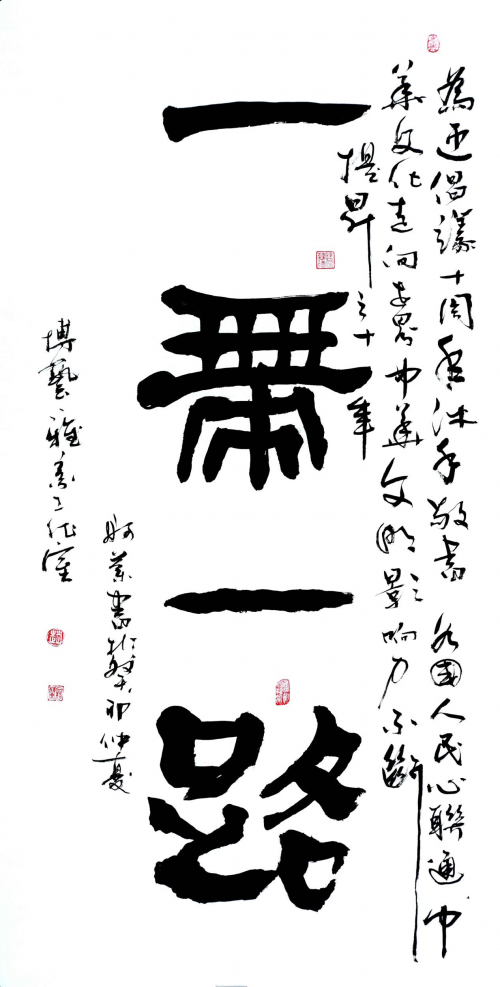 為倡議十周年沐手敬書 各國人民心聯通中
華文化走向世界中華文明影响力不斷
提昇之十年
一帶一路
書於癸卯仲夏
博藝雅集工作室